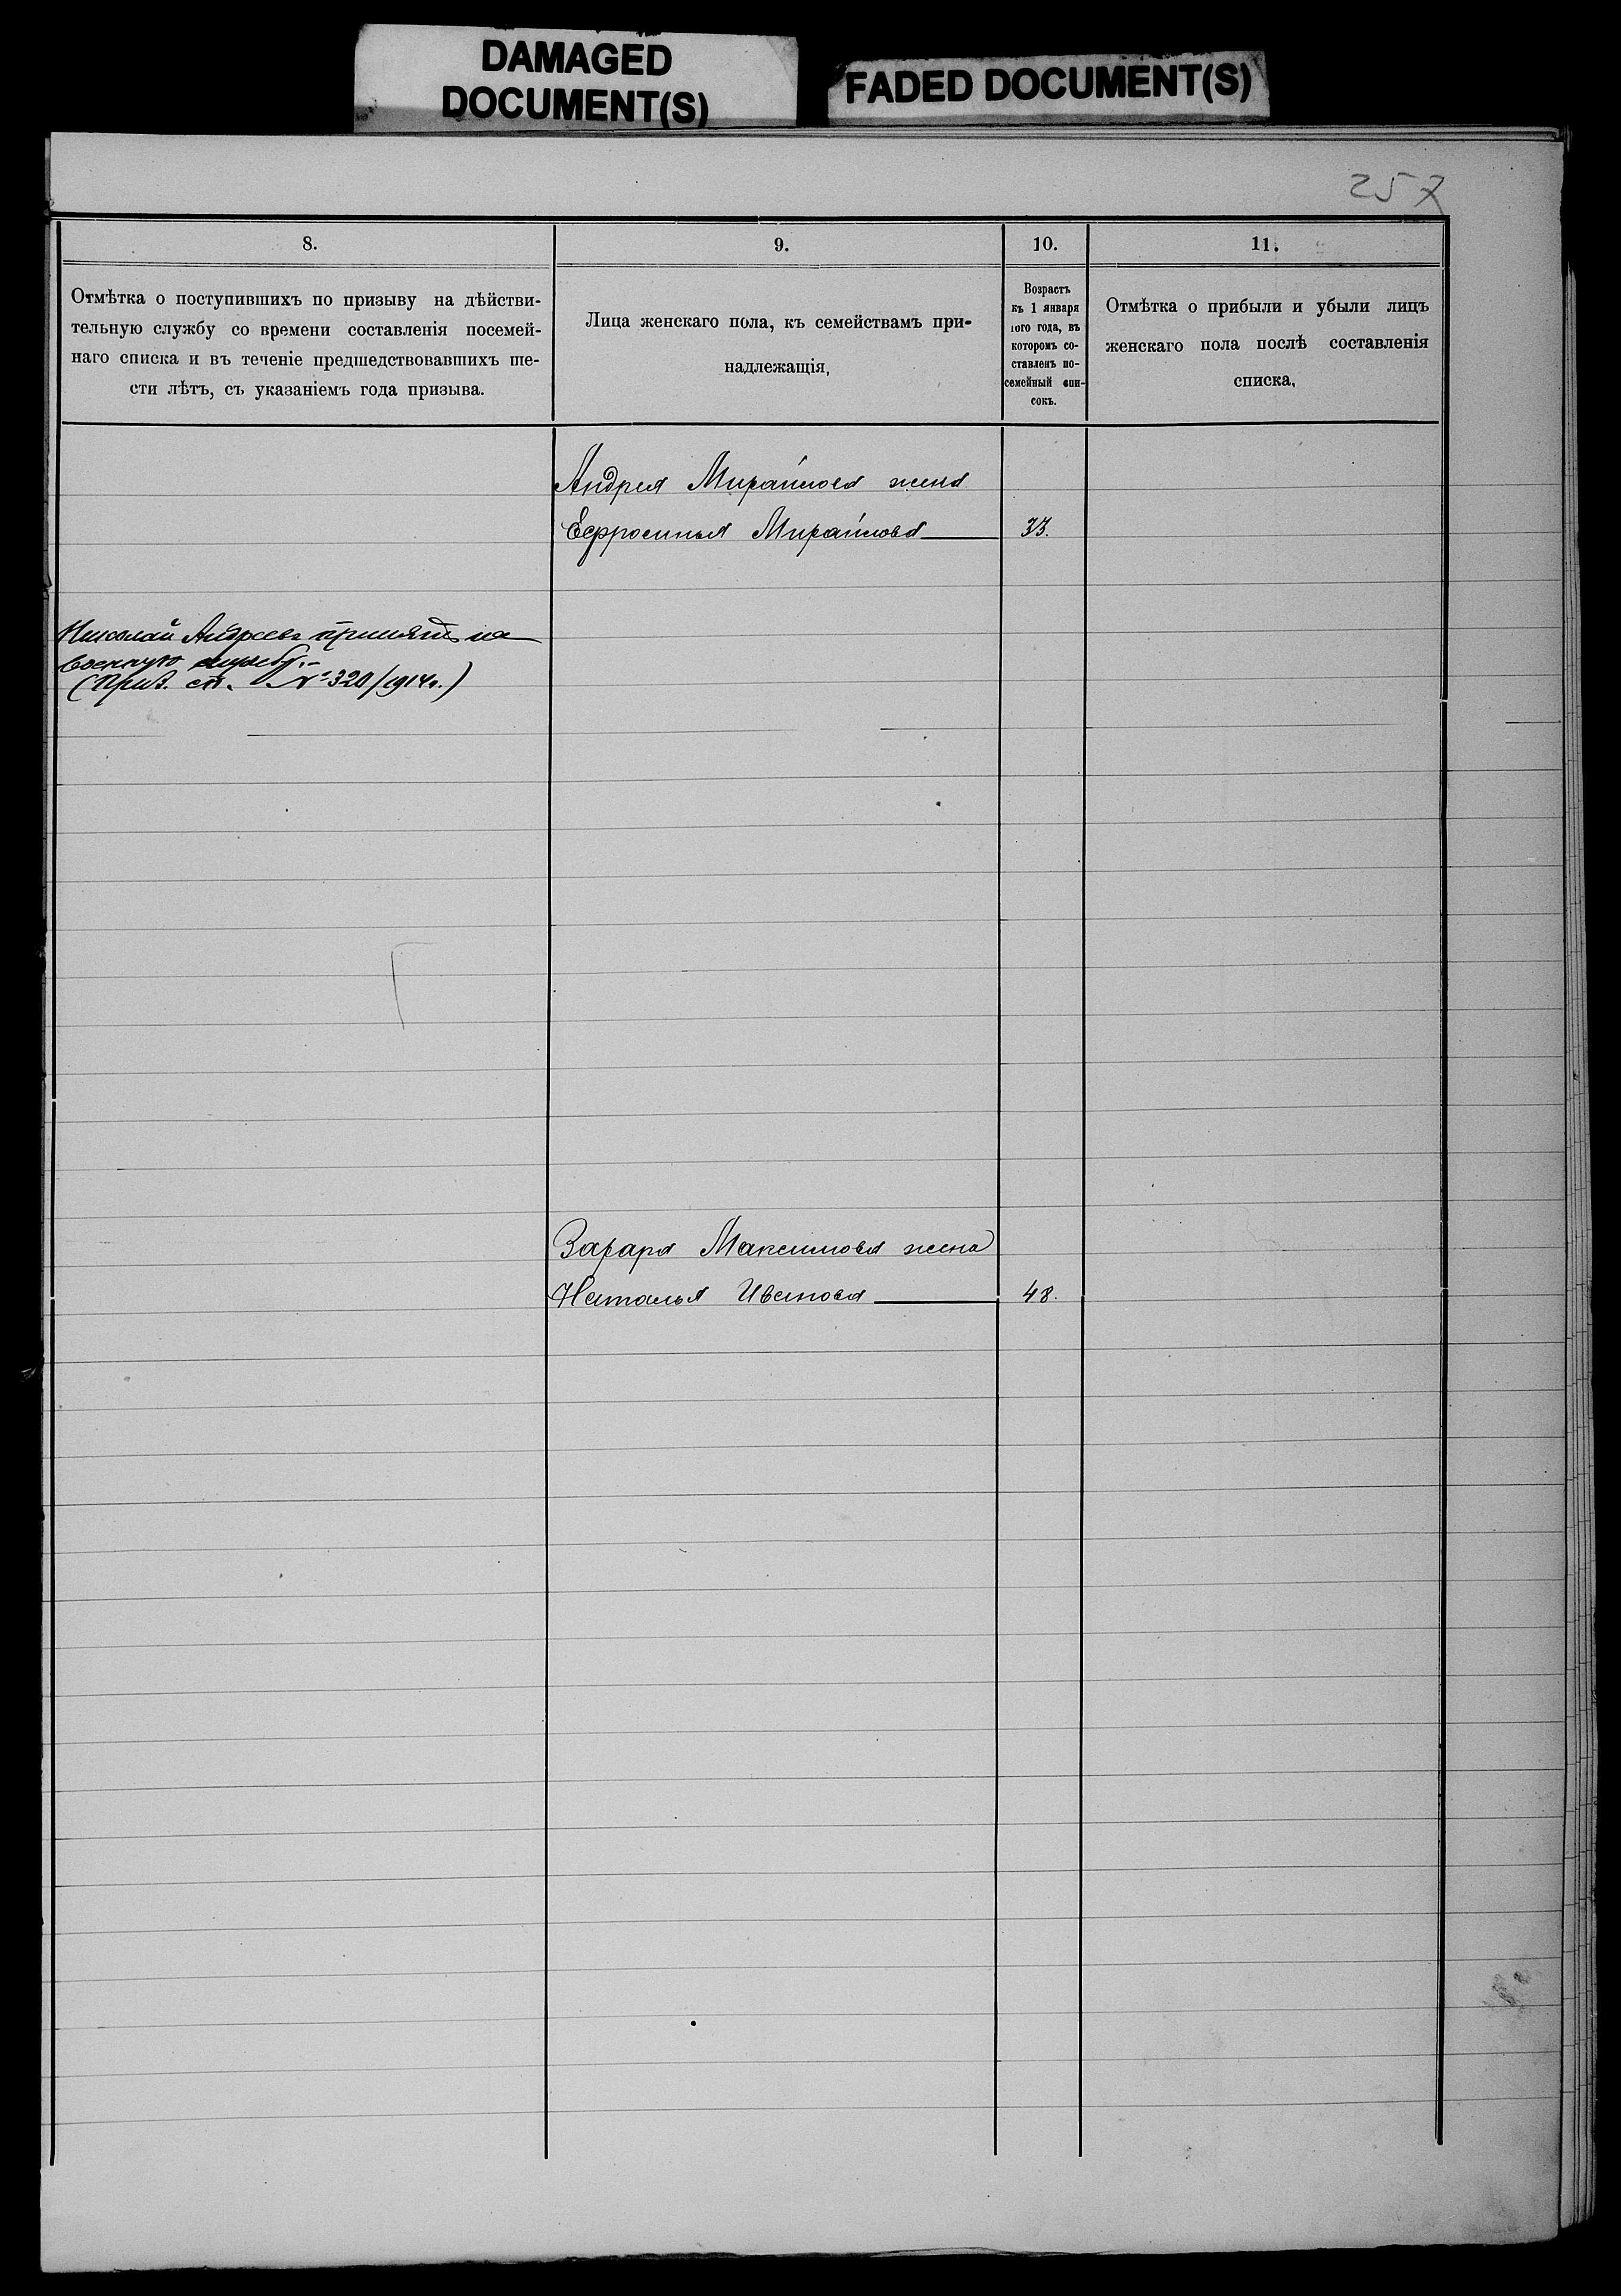 DAMAGED
DOCUMENT(S)
FADED DOCUMENT(S)
257
8.
Отмѣтка о поступившихъ по призыву на дѣйстви-
тельную службу со времени составленія посемей-
наго списка и въ теченіе предшедствовавшихъ ше-
сти лѣтъ, съ указаніемъ года призыва.
9.
Лица женскаго пола, къ семействамъ при-
надлежащія,
10.
Возрастъ
къ 1 января
того года, въ
которомъ со-
ставленъ по-
семейный спи-
сокъ.
11.
Отмѣтка о прибыли и убыли лицъ
женскаго пола послѣ составленія
списка,
Андрея Михайлова жена
Ефросинья Михайлова 33.
Николай Андреевъ принятъ на
военную службу.-
(Приз. сп. № 320/1914г.)
Захара Максимова жена
Наталья Иванова 48.